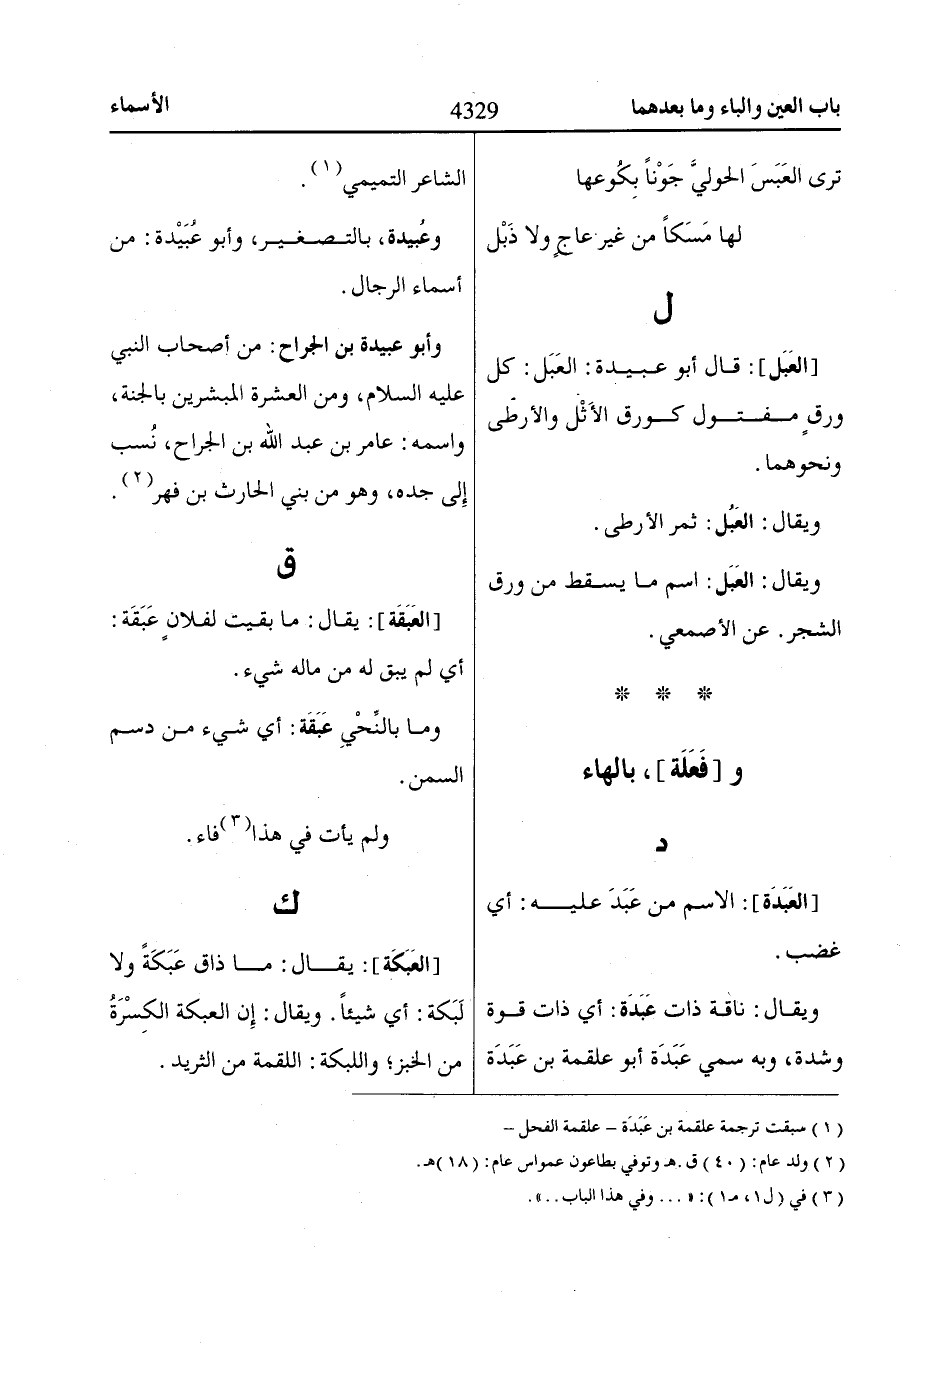 باب العين والباء وما بعدهما 4329 الأسماء
ترى العَبَسَ الحوليَّ جَوْناً بِكُوعها
لها مَسَكاً من غير عاجٍ ولا ذَبْل
ل
[العَبَل]: قال أبو عبيدة: العَبَل: كل
ورقٍ مفتول كورق الأَثْل والأرطى
ونحوهما.
ويقال: العَبُل: ثمر الأرطى.
ويقال: العَبَل: اسم ما يسقط من ورق
الشجر. عن الأصمعي.
* * *
و [فَعَلَة]، بالهاء
د
[العَبَدَة]: الاسم من عَبَدَ عليه: أي
غضب.
ويقال: ناقة ذات عَبَدَة: أي ذات قوة
وشدة، وبه سمي عَبَدَة أبو علقمة بن عَبَدَة
الشاعر التميمي(١).
وعُبيدة، بالتصغير، وأبو عُبَيْدة: من
أسماء الرجال.
وأبو عبيدة بن الجراح: من أصحاب النبي
عليه السلام، ومن العشرة المبشرين بالجنة،
واسمه: عامر بن عبد الله بن الجراح، نُسب
إلى جده، وهو من بني الحارث بن فهر(٢).
ق
[العَبَقَة]: يقال: ما بقيت لفلانٍ عَبَقَة:
أي لم يبق له من ماله شيء.
وما بالنِّحْيِ عَبَقَة: أي شيء من دسم
السمن.
ولم يأت في هذا(٣) فاء.
ك
[العَبَكَة]: يقال: ما ذاق عَبَكَةً ولا
لَبَكة: أي شيئاً. ويقال: إن العبكة الكِسْرَةُ
من الخبز؛ واللبكة: اللقمة من الثريد.
(١) سبقت ترجمة علقمة بن عَبَدَة – علقمة الفحل –
(٢) ولد عام: (٤٠) ق.هـ وتوفي بطاعون عمواس عام: (١٨)هـ.
(٣) في (ل١، م١): «... وفي هذا الباب..».